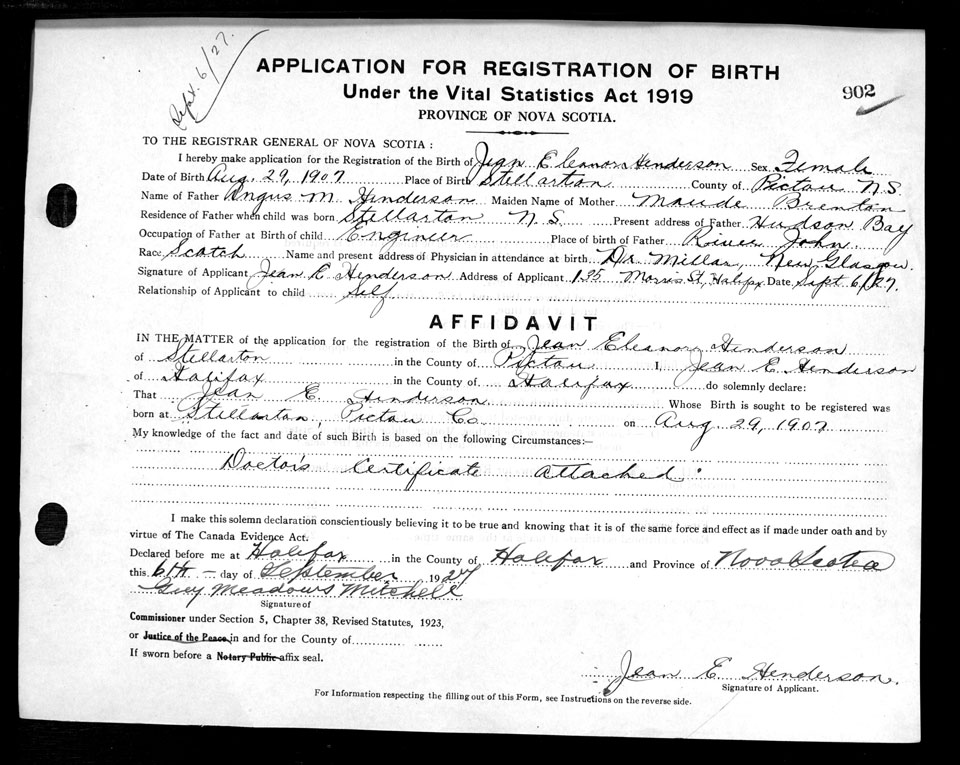 Sept. 6/27.
APPLICATION FOR REGISTRATION OF BIRTH
Under the Vital Statistics Act 1919
902
PROVINCE OF NOVA SCOTIA.
TO THE REGISTRAR GENERAL OF NOVA SCOTIA :
I hereby make application for the Registration of the Birth of Jean Eleanor Henderson Sex Female
Date of Birth Aug. 29, 1907 Place of Birth Stellarton County of Pictou N S
Name of Father Angus M. Henderson Maiden Name of Mother Maude Brenton
Residence of Father when child was born Stellarton N. S. Present address of Father Hudson Bay
Occupation of Father at Birth of child Engineer Place of birth of Father River John.
Race Scotch Name and present address of Physician in attendance at birth Dr Millar, New Glasgow.
Signature of Applicant Jean E Henderson Address of Applicant 135 Morris St, Halifax Date Sept 6/27.
Relationship of Applicant to child Self
AFFIDAVIT
IN THE MATTER of the application for the registration of the Birth of Jean Eleanor Henderson
of Stellarton in the County of Pictou I, Jean E. Henderson
of Halifax in the County of Halifax do solemnly declare:
That Jean E. Henderson Whose Birth is sought to be registered was
born at Stellarton, Pictou Co on Aug 29, 1907
My knowledge of the fact and date of such Birth is based on the following Circumstances:—
Doctor's Certificate attached.
I make this solemn declaration conscientiously believing it to be true and knowing that it is of the same force and effect as if made under oath and by
virtue of The Canada Evidence Act.
Declared before me at Halifax in the County of Halifax and Province of Nova Scotia
this 6th day of September 1927
Guy Meadows Mitchell
Signature of
Commissioner under Section 5, Chapter 38, Revised Statutes, 1923,
or Justice of the Peace in and for the County of
If sworn before a Notary Public affix seal.
Jean E Henderson.
Signature of Applicant.
For Information respecting the filling out of this Form, see Instructions on the reverse side.